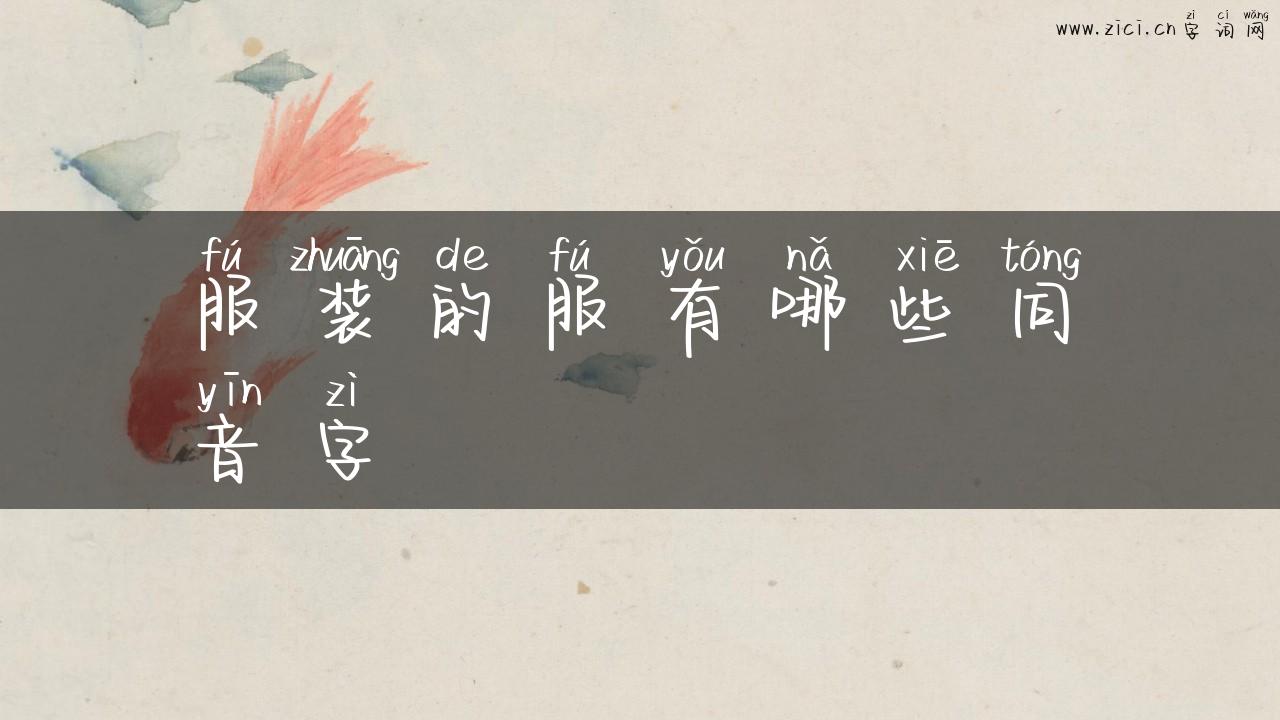 zì cí wǎng
www.zici.cn 字 词 网
fú zhuāng de fú yǒu nǎ xiē tóng
服 装 的 服 有 哪 些 同
yīn zì
音 字